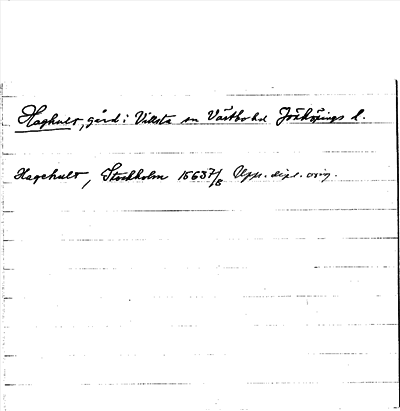 Haghult, gård i Villsta sn Västbo hd Jönköpings l.
Hagehult, Stockholm 1563 7/8 Upps. dipl. orig.